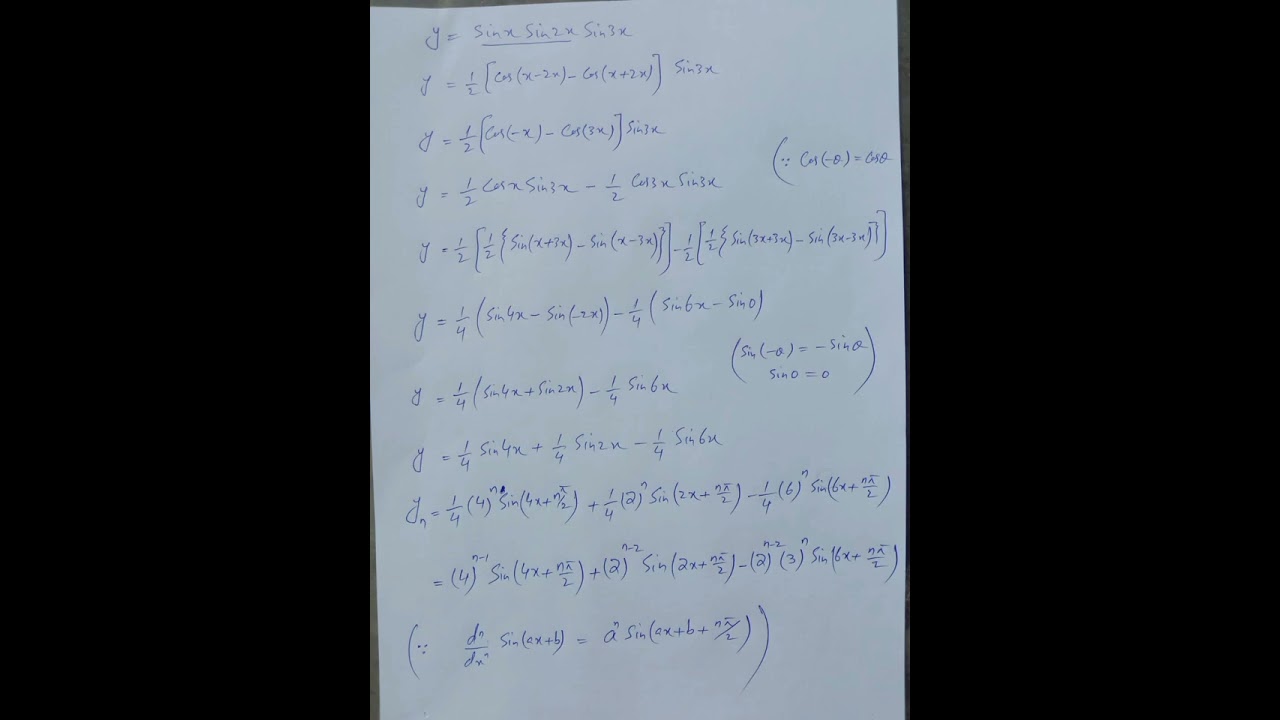 y = Sinx Sin2x Sin3x
y = 1/2 [Cos(x-2x) - Cos(x+2x)] Sin3x
y = 1/2 [Cos(-x) - Cos(3x)] Sin3x
(∵ Cos(-θ) = Cosθ
y = 1/2 Cosx Sin3x - 1/2 Cos3x Sin3x
y = 1/2 [1/2 {Sin(x+3x) - Sin(x-3x)}] - 1/2 [1/2 {Sin(3x+3x) - Sin(3x-3x)}]
y = 1/4 (Sin4x - Sin(-2x)) - 1/4 (Sin6x - Sin0)
(Sin(-θ) = -Sinθ
Sin0 = 0)
y = 1/4 (Sin4x + Sin2x) - 1/4 Sin6x
y = 1/4 Sin4x + 1/4 Sin2x - 1/4 Sin6x
yₙ = 1/4 (4)ⁿ Sin(4x + nπ/2) + 1/4 (2)ⁿ Sin(2x + nπ/2) - 1/4 (6)ⁿ Sin(6x + nπ/2)
= (4)ⁿ⁻¹ Sin(4x + nπ/2) + (2)ⁿ⁻² Sin(2x + nπ/2) - (2)ⁿ⁻² (3)ⁿ Sin(6x + nπ/2)
(∵ dⁿ/dxⁿ Sin(ax+b) = aⁿ Sin(ax+b + nπ/2))